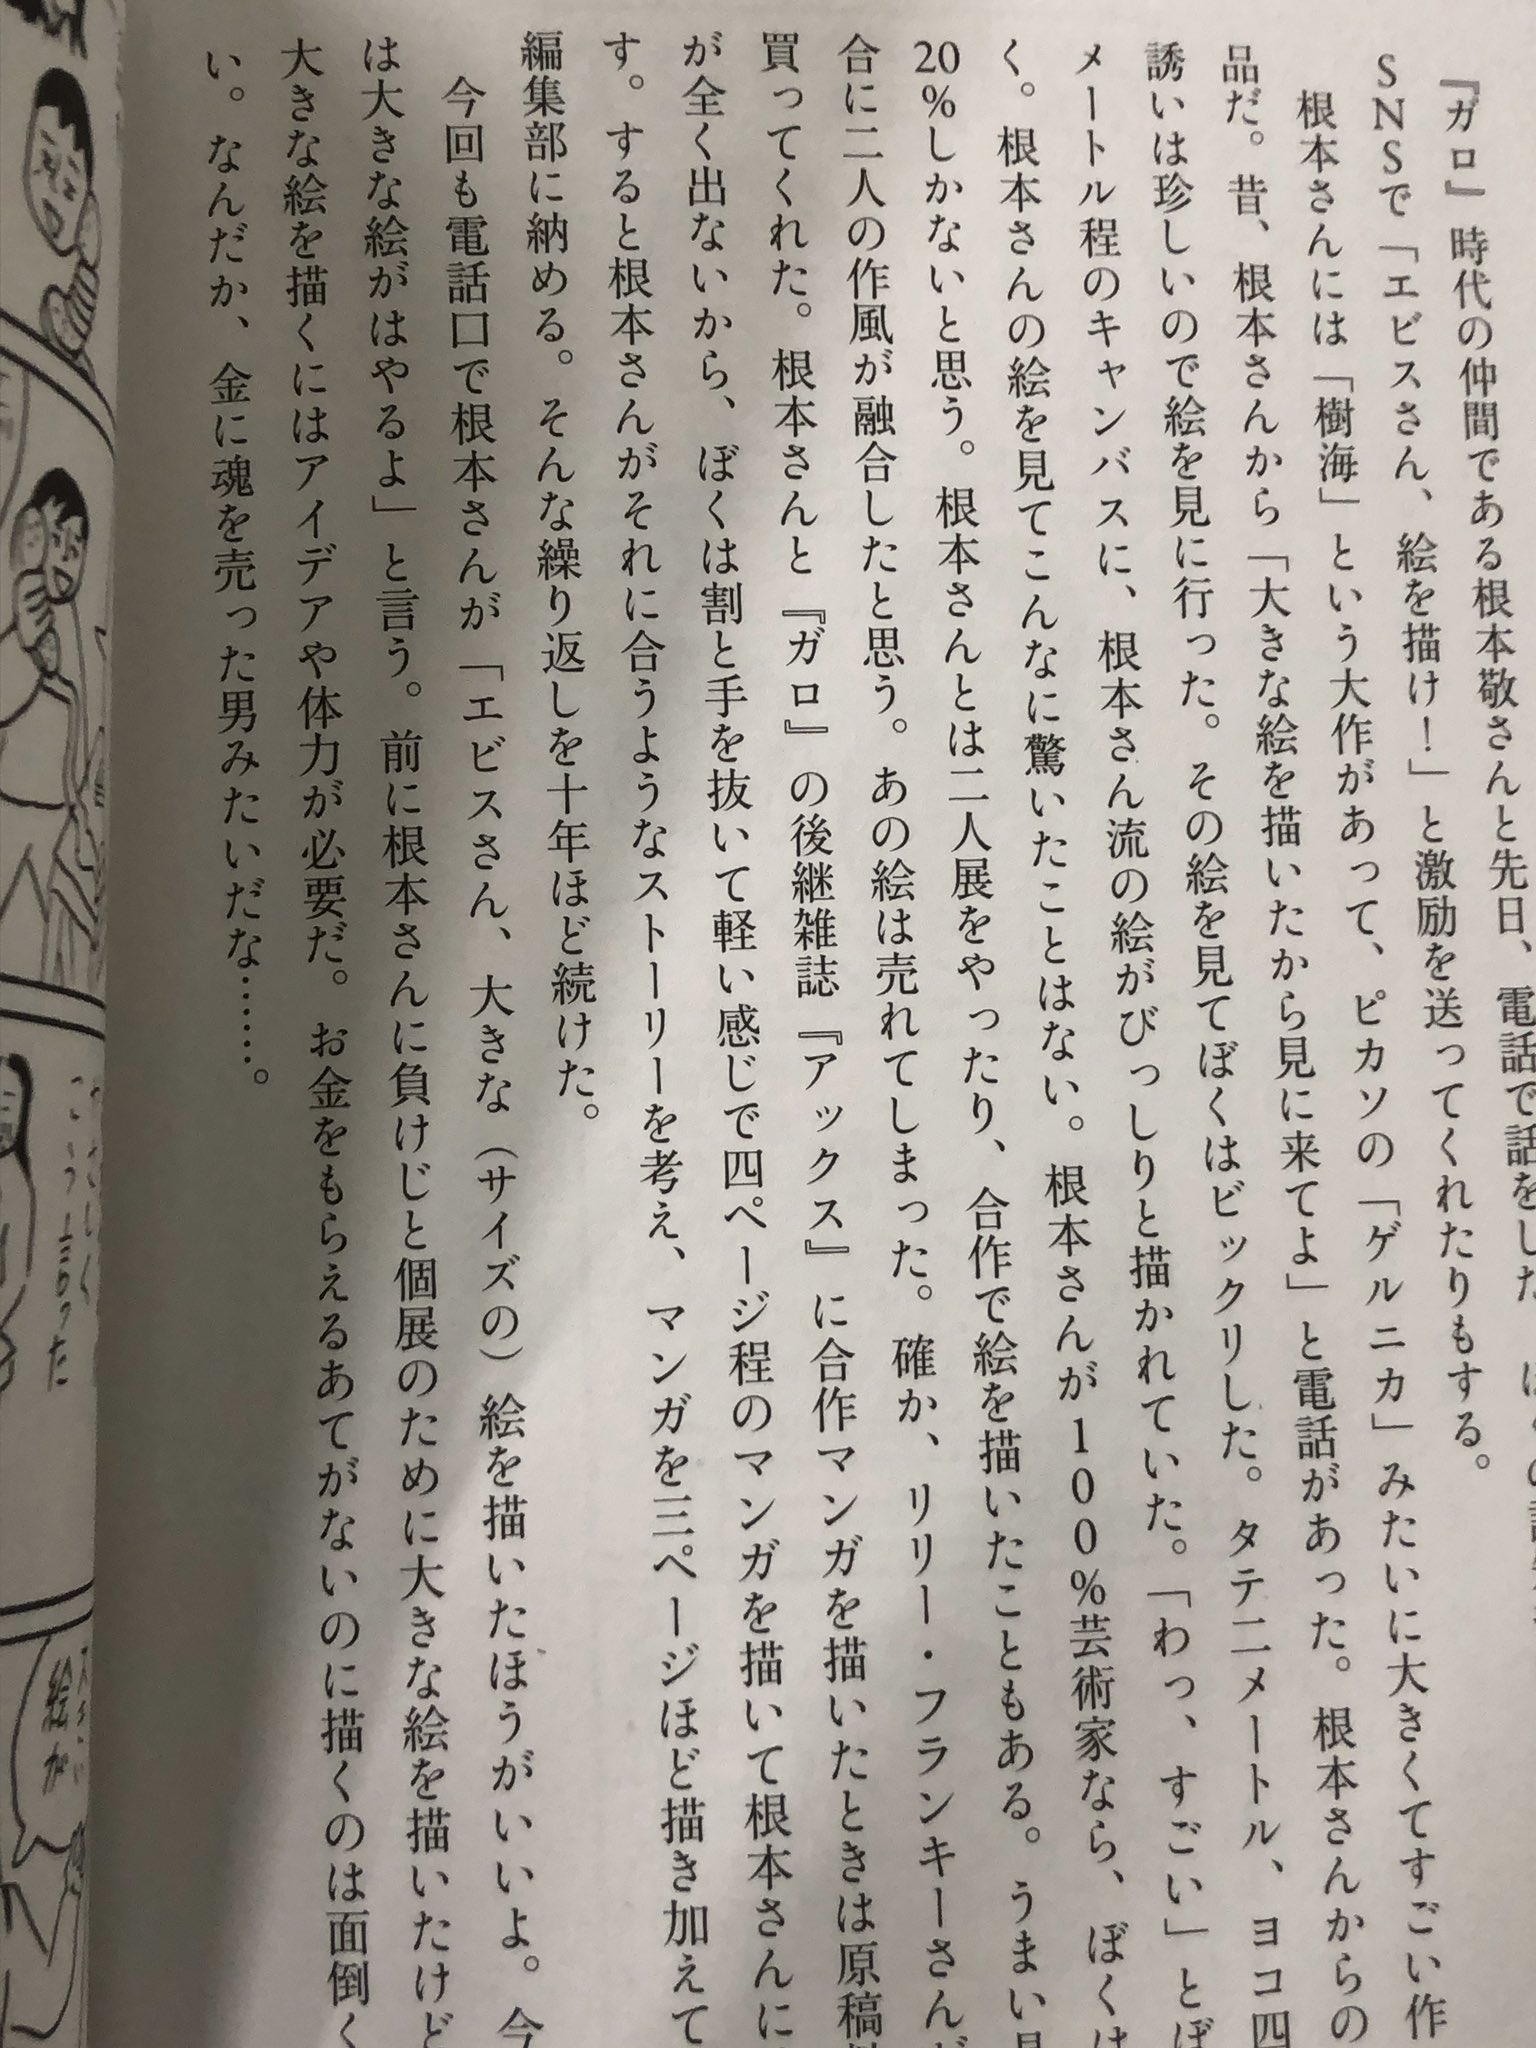 『ガロ』時代の仲間である根本敬さんと先日、電話で話をした
SNSで「エビスさん、絵を描け！」と激励を送ってくれたりもする。
根本さんには「樹海」という大作があって、ピカソの「ゲルニカ」みたいに大きくてすごい作
品だ。昔、根本さんから「大きな絵を描いたから見に来てよ」と電話があった。根本さんからの
誘いは珍しいので絵を見に行った。その絵を見てぼくはビックリした。タテ二メートル、ヨコ四
メートル程のキャンバスに、根本さん流の絵がびっしりと描かれていた。「わっ、すごい」とぼ
く。根本さんの絵を見てこんなに驚いたことはない。根本さんが100％芸術家なら、ぼくは
20％しかないと思う。根本さんとは二人展をやったり、合作で絵を描いたこともある。うまい具
合に二人の作風が融合したと思う。あの絵は売れてしまった。確か、リリー・フランキーさんが
買ってくれた。根本さんと『ガロ』の後継雑誌『アックス』に合作マンガを描いたときは原稿料
が全く出ないから、ぼくは割と手を抜いて軽い感じで四ページ程のマンガを描いて根本さんに
す。すると根本さんがそれに合うようなストーリーを考え、マンガを三ページほど描き加えて
編集部に納める。そんな繰り返しを十年ほど続けた。
今回も電話口で根本さんが「エビスさん、大きな（サイズの）絵を描いたほうがいいよ。今
は大きな絵がはやるよ」と言う。前に根本さんに負けじと個展のために大きな絵を描いたけど
大きな絵を描くにはアイデアや体力が必要だ。お金をもらえるあてがないのに描くのは面倒く
い。なんだか、金に魂を売った男みたいだな……。
こう言った
絵が